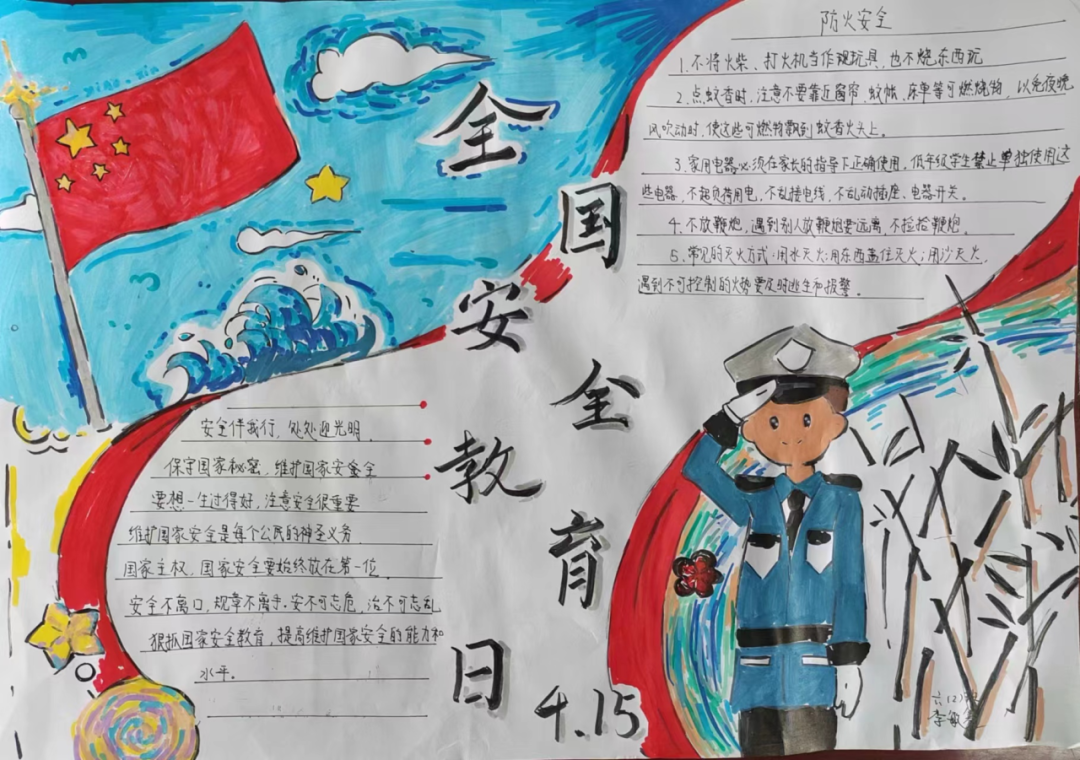 全国安全教育日
4.15
防火安全
1.不将火柴、打火机当作观玩具，也不烧东西玩
2.点蚊香时，注意不要靠近窗帘、蚊帐、床单等可燃烧物，以免夜晚
风吹动时，使这些可燃物飘到蚊香火头上。
3.家用电器必须在家长的指导下正确使用。低年级学生禁止单独使用这
些电器，不超负荷用电，不乱接电线，不乱动插座、电器开关。
4.不放鞭炮，遇到别人放鞭炮要远离，不捡拾鞭炮。
5.常见的灭火方式：用水灭火；用东西盖住灭火；用沙灭火，
遇到不可控制的火势要及时逃生和报警。
安全伴我行，处处迎光明。
保守国家秘密，维护国家安全
要想一生过得好，注意安全很重要
维护国家安全是每个公民的神圣义务.
国家主权，国家安全要始终放在第一位。
安全不离口，规章不离手。安不可忘危，治不可忘乱
狠抓国家安全教育，提高维护国家安全的能力和
水平。
六(2)班
李敏